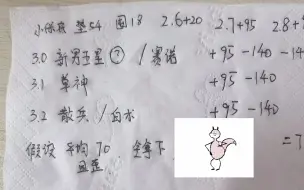 小保底 垫54 圈18 2.6+20 2.7+95 2.8+
3.0 新男主星? / 赛诺 +95 -140 -14
3.1 草神 +95 -140
3.2 散兵 / 白术 +95 -140
假设 平均70 全拿下
=7